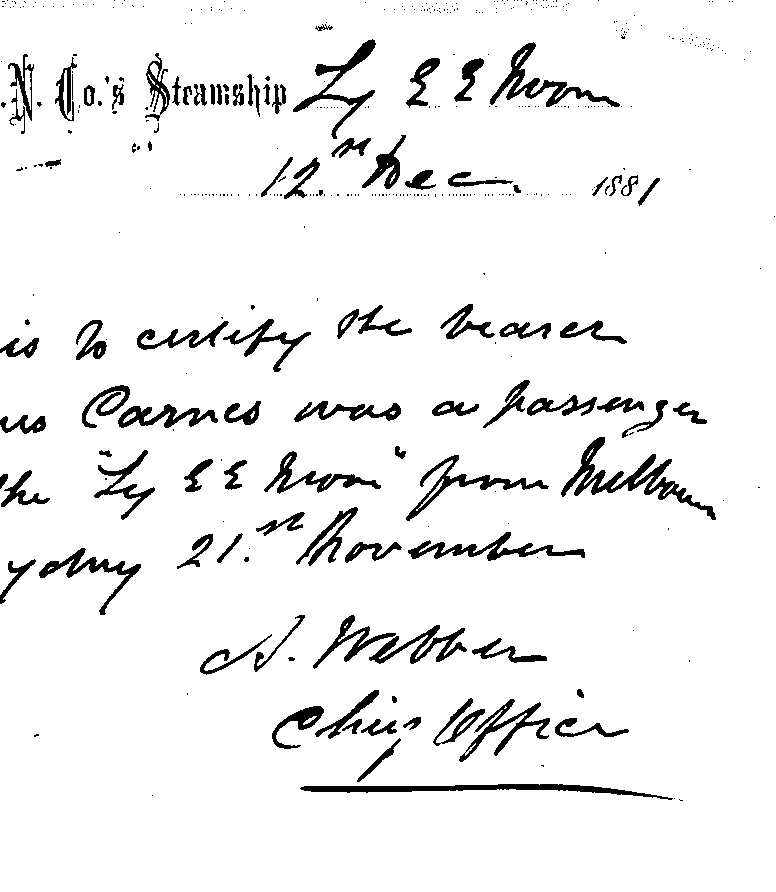 .N. Co.'s Steamship Ly E E Moon
12.st Dec. 1881
is to certify the bearer
us Carnes was a passenger
the "Ly E E Moon" from Melbourn
ydney 21.st November
A. Webber
Chief Officer